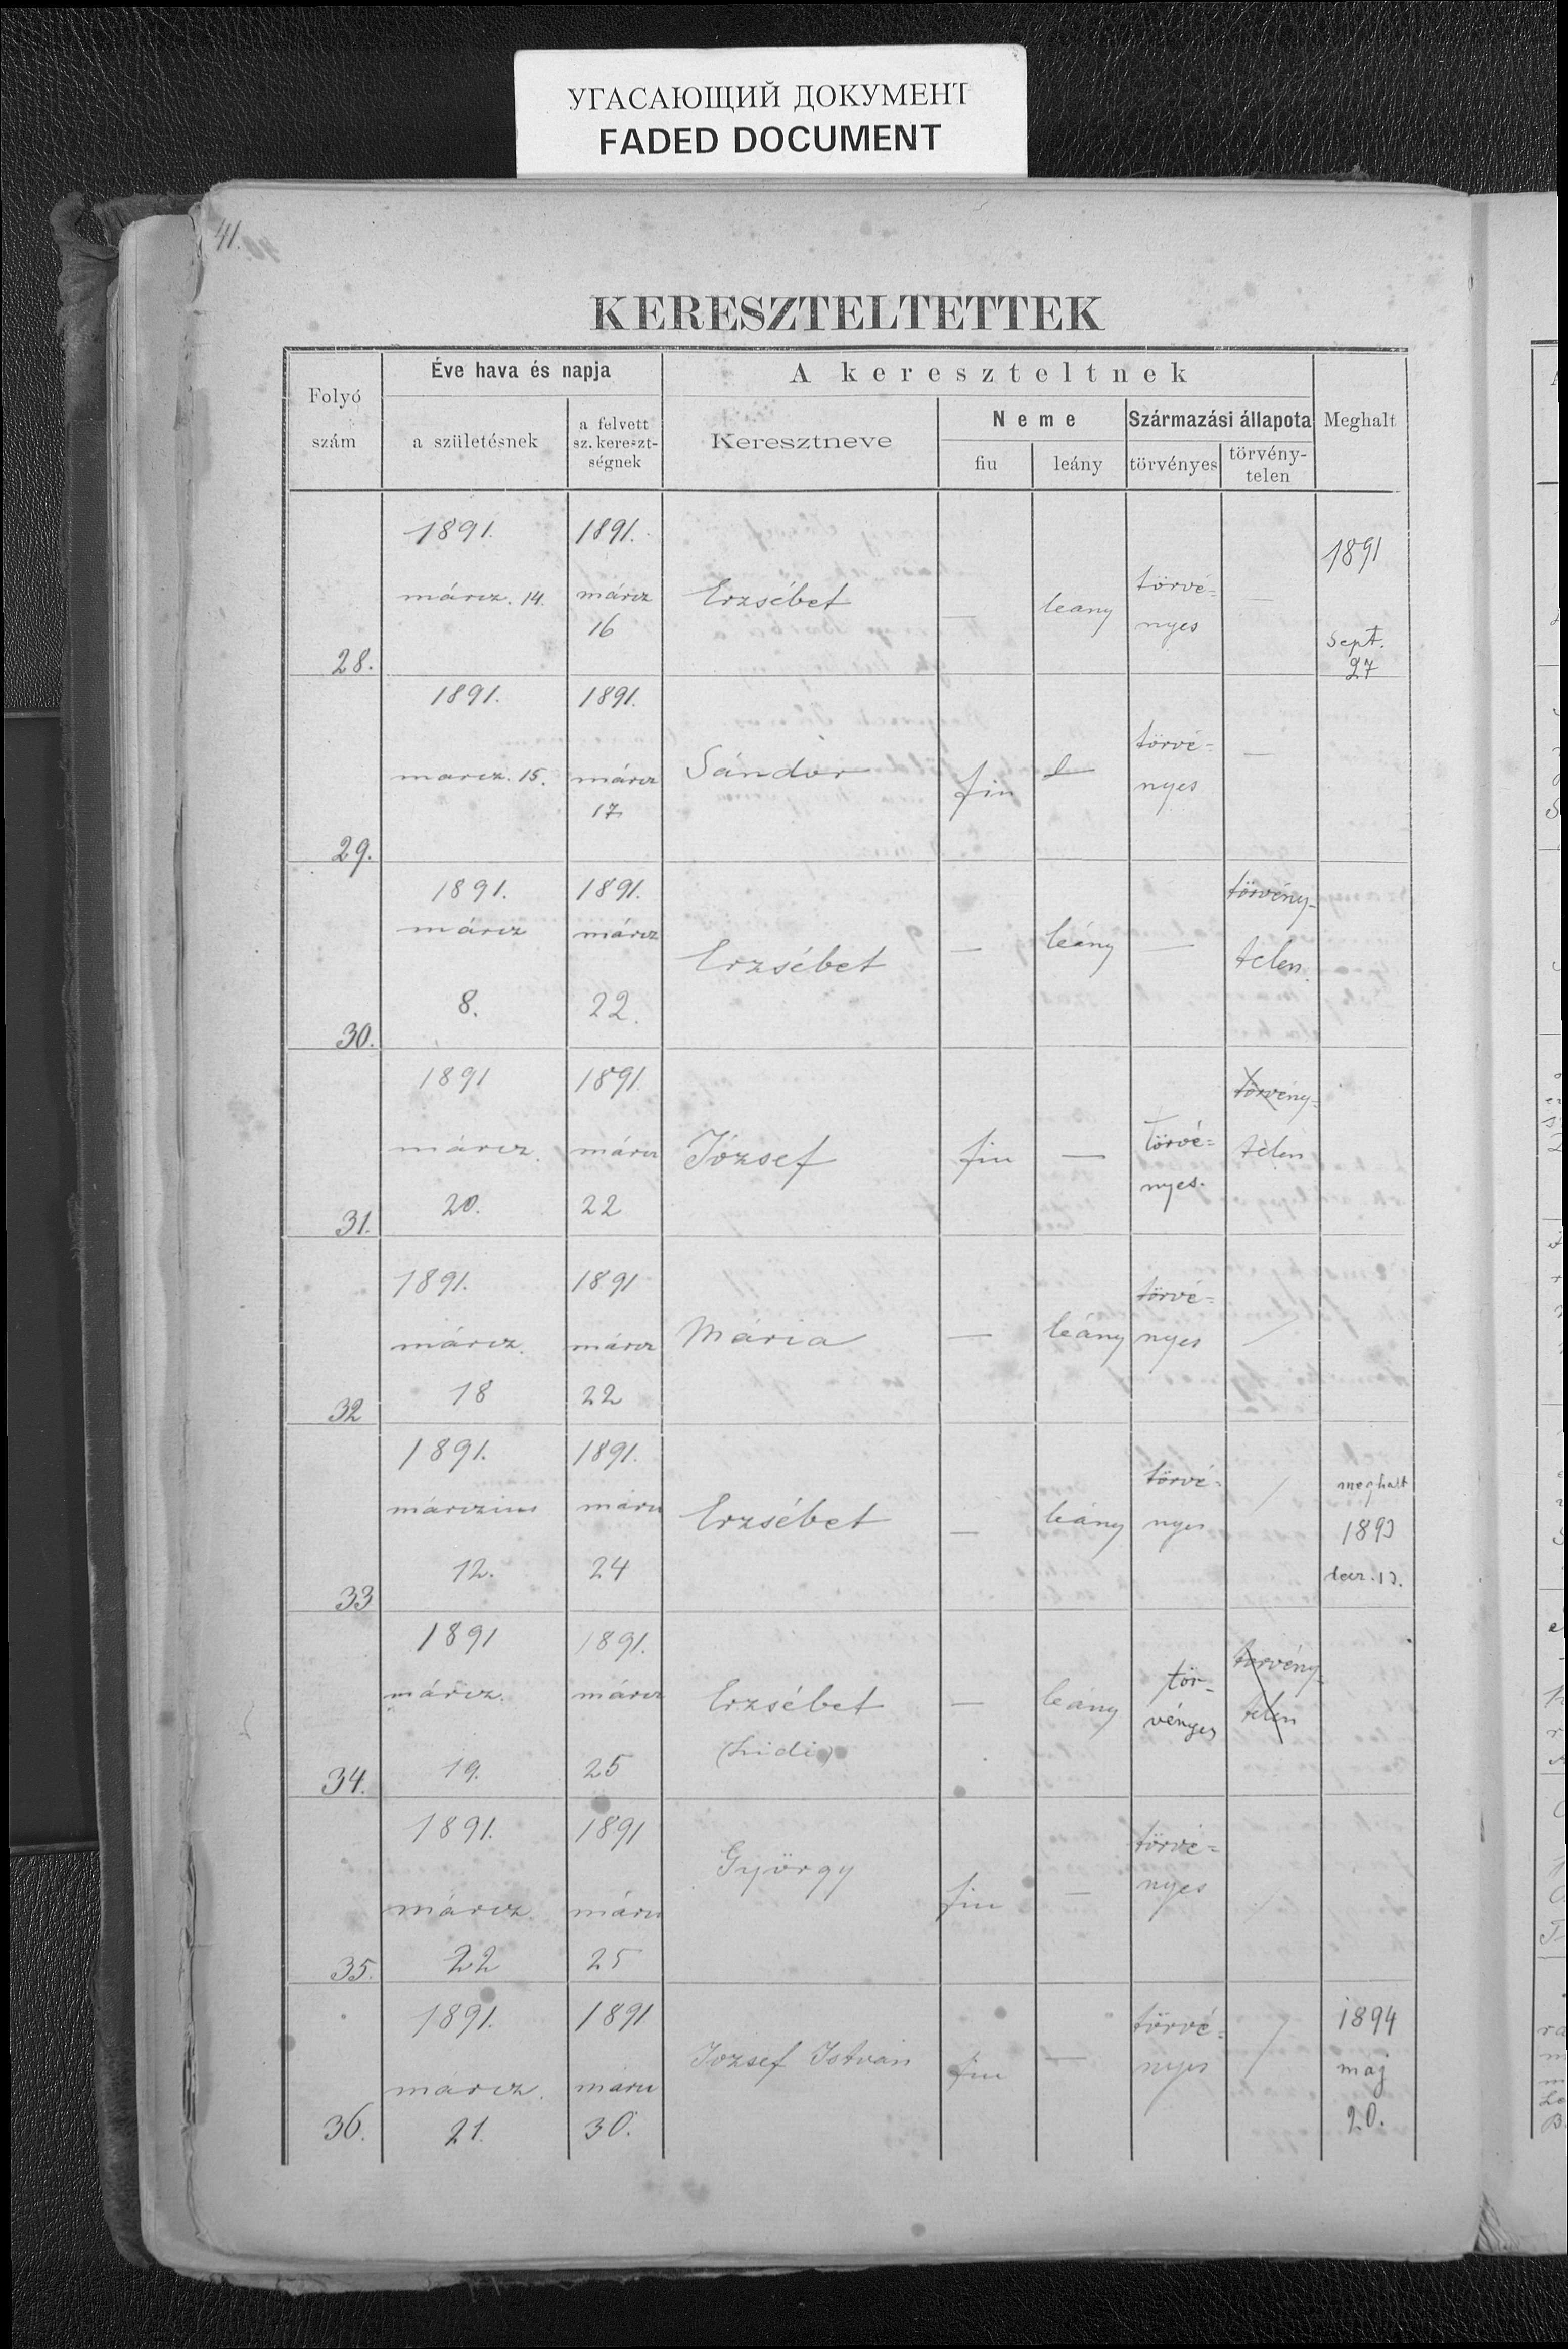 УГАСАЮЩИЙ ДОКУМЕНТ
FADED DOCUMENT
41.
KERESZTELTETTEK
Folyó szám
Éve hava és napja
a születésnek
a felvett sz. kereszt-ségnek
A kereszteltnek
Keresztneve
Neme
fiu
leány
Származási állapota
törvényes
törvény-telen
Meghalt
28.
1891.
márcz. 14.
1891.
márcz
16
Erzsébet
—
leany
törvé=
nyes
—
1891
Sept.
27
29.
1891.
marcz. 15.
1891.
márcz
17.
Sándor
fiu
törvé=
nyes
—
30.
1891.
márcz
8.
1891.
márcz
22.
Erzsébet
—
leány
—
törvény-
telen.
31.
1891
márcz.
20.
1891.
márcz
22
József
fiu
—
törvé=
nyes.
törvény=
telen
32
1891.
márcz.
18
1891
márcz
22
Mária
—
leány
törvé=
nyes
/
33
1891.
márczius
12.
1891.
márcz
24
Erzsébet
—
leány
törvé-
nyes
/
meghalt
1893
decz. 13.
34.
1891
márcz.
19.
1891.
márcz
25
Erzsébet
(Lidi)
—
leány
tör-
vényes
törvény-
telen
35.
1891.
márcz
22
1891
márcz
25
György
fiu
—
törvé=
nyes
/
36.
1891.
marcz.
21.
1891
marcz
30.
Jozsef Istvan
fiu
—
törvé=
nyes
/
1894
maj
20.